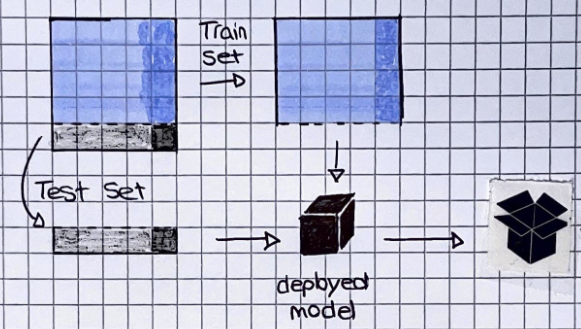 Train
set
Test Set
deployed
model